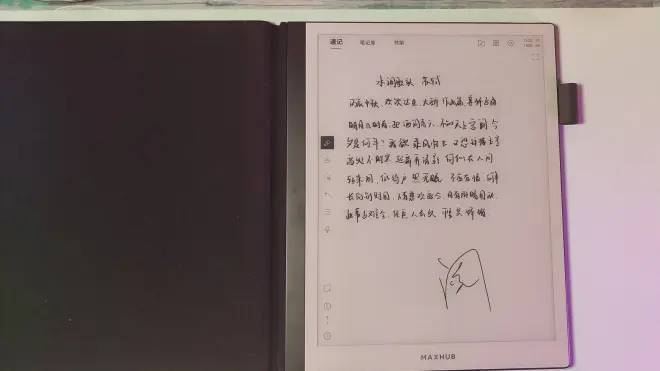 速记 笔记屋
水调歌头 苏轼
丙辰中秋，欢饮达旦，大醉，作此篇，兼怀子由
明月几时有，把酒问青天，不知天上宫阙 今
夕是何年？我欲乘风归去 又恐琼楼玉宇
高处不胜寒 起舞弄清影 何似在人间
转朱阁，低绮户 照无眠 不应有恨 何事
长向别时圆，人有悲欢离合，月有阴晴圆缺
此事古难全，但愿人长久 千里共婵娟
MAXHUB